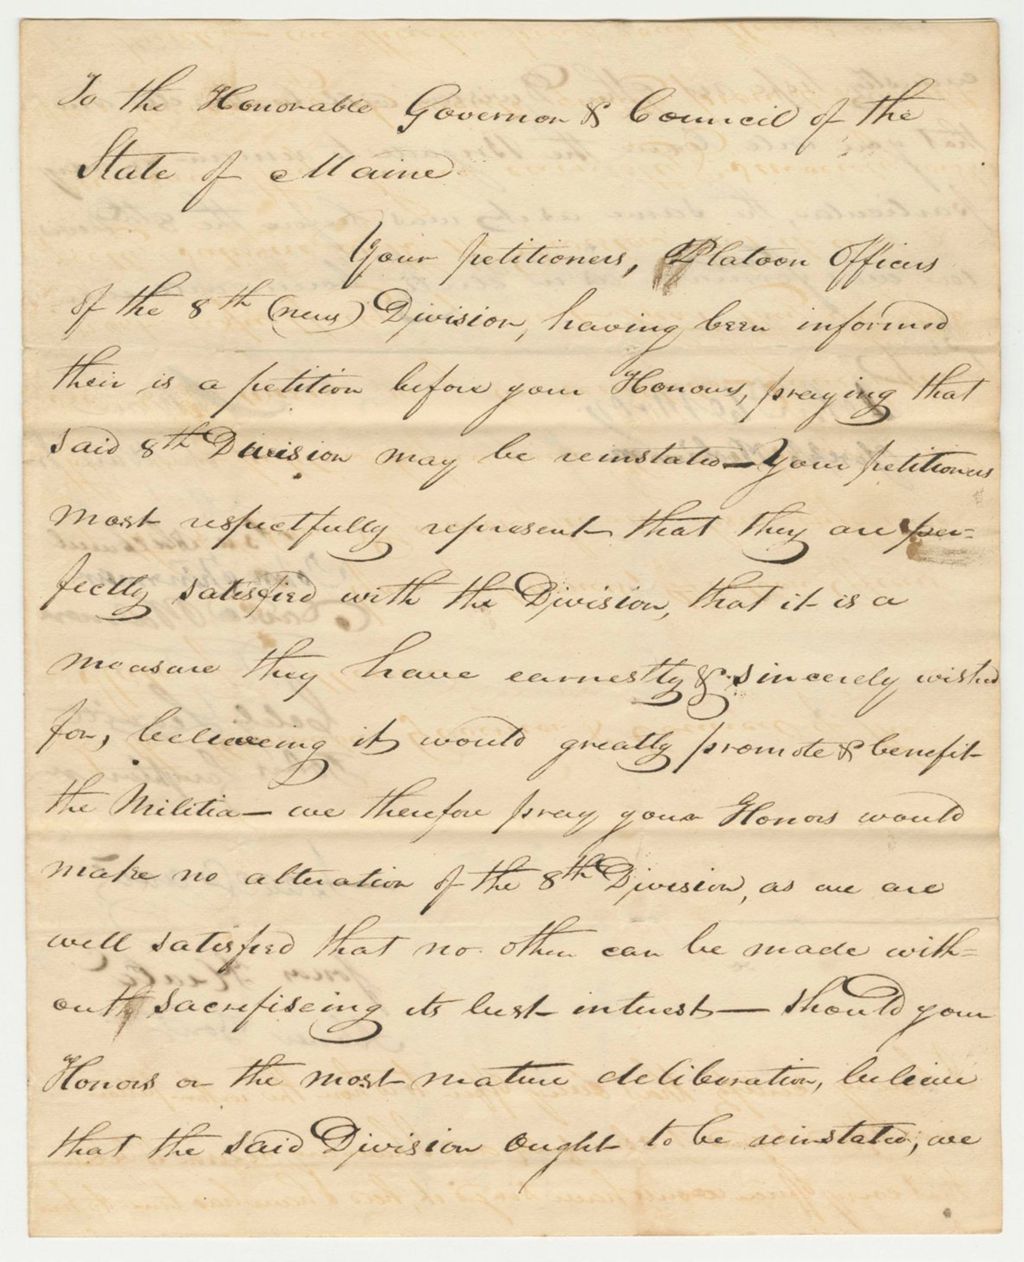 To the Honorable Governor & Council of the
State of Maine
Your petitioners, Platoon Officers
of the 8th (new) Division, having been informed
their is a petition before your Honours, praying that
said 8th Division may be reinstated — Your petitioners
most respectfully represent that they are per=
fectly satisfied with the Division, that it is a
measure they have earnestly & sincerely wished
for, believeing it would greatly promote & benefit
the Militia — we therefore pray your Honors would
make no alteration of the 8th Division, as we are
well satisfied that no other can be made with=
out sacrifiseing its best interest — should your
Honors on the most mature deliberation, believe
that the said Division ought to be reinstated, we